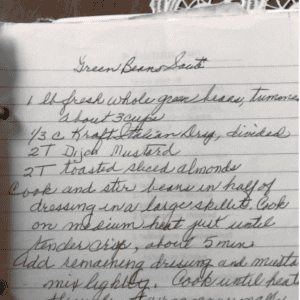 Green Beans Sauté
1 lb fresh whole green beans, trimmed
about 3 cups
1/3 c Kraft Italian Drsg, divided
2T Dijon Mustard
2T toasted sliced almonds
Cook and stir beans in half of
dressing in a large skillet. Cook
on medium heat just until
tender crisp, about 5 min
Add remaining dressing and musta
mix lightly. Cook until heat